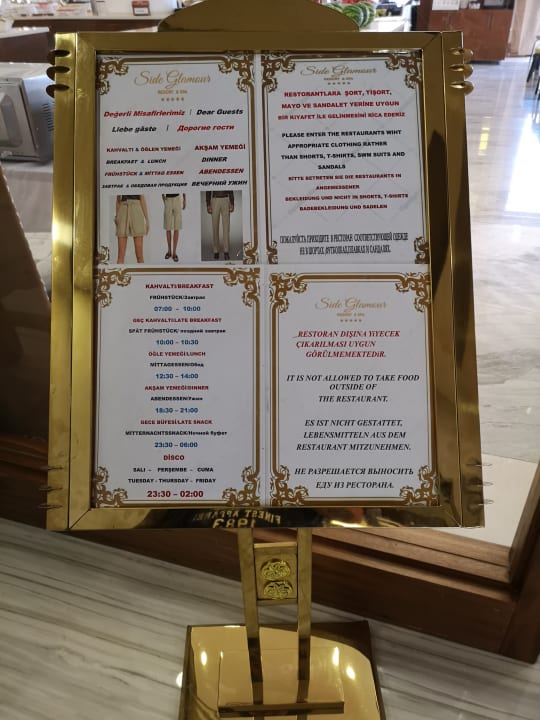 Side Glamour
RESORT & SPA
★★★★★
Değerli Misafirlerimiz | Dear Guests
Liebe gäste | Дорогие гости
KAHVALTI & ÖĞLEN YEMEĞİ
BREAKFAST & LUNCH
FRÜHSTÜCK & MITTAG ESSEN
ЗАВТРАК & ОБЕДОВАЯ ПРОДУКЦИЯ
AKŞAM YEMEĞİ
DINNER
ABENDESSEN
ВЕЧЕРНИЙ УЖИН
Side Glamour
RESORT & SPA
★★★★★
RESTORANTLARA ŞORT, TİŞORT,
MAYO VE SANDALET YERİNE UYGUN
BİR KIYAFET İLE GELİNMESİNİ RİCA EDERİZ
PLEASE ENTER THE RESTAURANTS WIHT
APPROPRIATE CLOTHING RATHER
THAN SHORTS, T-SHIRTS, SWM SUITS AND
SANDALS
BITTE BETRETEN SIE DIE RESTAURANTS IN
ANGEMESSENER
GEKLEIDUNG UND NICHT IN SHORTS, T-SHIRTS
BADEBEKLEIDUNG UND SADELEN
ПОЖАЛУЙСТА ПРИХОДИТЕ В РЕСТОРАН СООТВЕТСТВУЮЩЕЙ ОДЕЖДЕ
НЕ В ШОРТАХ, ФУТБОЛКАХ, ПЛАВКАХ И САНДАЛЯХ.
KAHVALTI/BREAKFAST
FRÜHSTÜCK/Завтрак
07:00 – 10:00
GEÇ KAHVALTI/LATE BREAKFAST
SPÄT FRÜHSTÜCK/ поздний завтрак
10:00 – 10:30
ÖĞLE YEMEĞİ/LUNCH
MİTTAGESSEN/Обед
12:30 – 14:00
AKŞAM YEMEĞİ/DINNER
ABENDESSEN/Ужин
18:30 – 21:00
GECE BÜFESİ/LATE SNACK
MITTERNACHTSSNACK/Ночной буфет
23:30 – 06:00
DİSCO
SALI – PERŞEMBE – CUMA
TUESDAY - THURSDAY – FRIDAY
23:30 – 02:00
Side Glamour
RESORT & SPA
★★★★★
RESTORAN DIŞINA YiYECEK
ÇIKARILMASI UYGUN
GÖRÜLMEMEKTEDiR.
IT IS NOT ALLOWED TO TAKE FOOD
OUTSIDE OF
THE RESTAURANT.
ES IST NICHT GESTATTET,
LEBENSMITTELN AUS DEM
RESTAURANT MITZUNEHMEN.
НЕ РАЗРЕШАЕТСЯ ВЫНОСИТЬ
ЕДУ ИЗ РЕСТОРАНА.